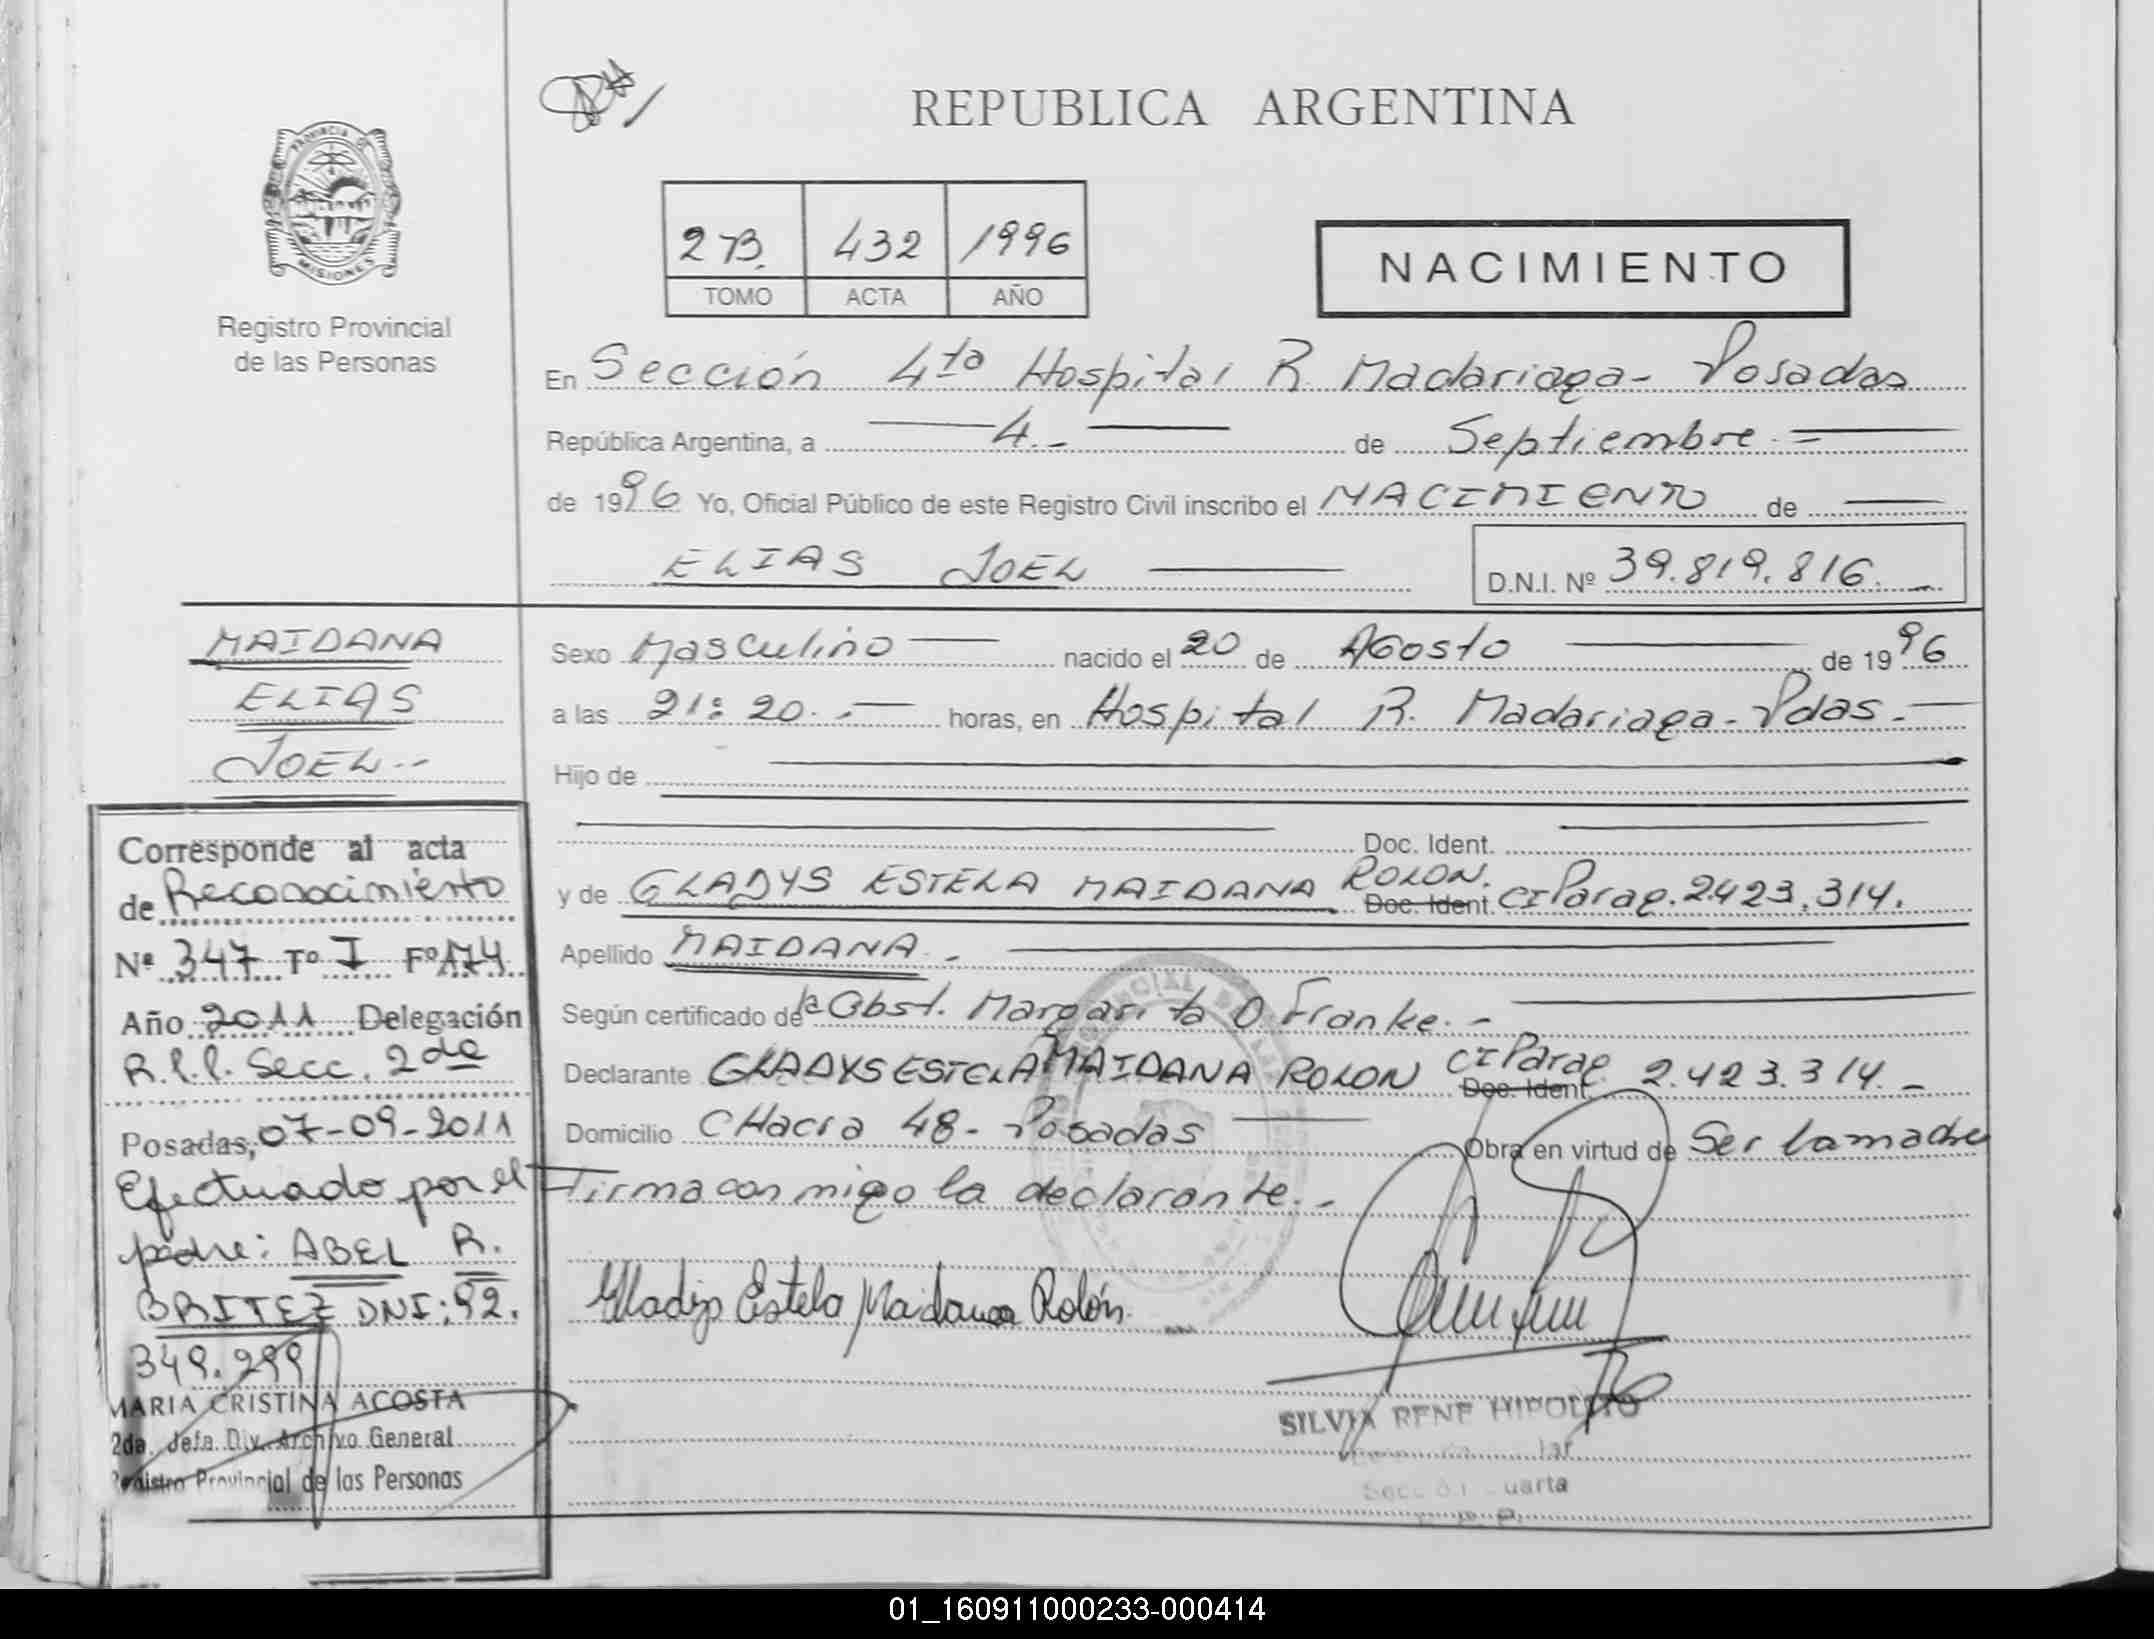 REPUBLICA ARGENTINA
PROVINCIA DE
MISIONES
Registro Provincial
de las Personas
2 B. 432 1996
TOMO ACTA AÑO
NACIMIENTO
En Sección 4ta Hospital R. Madariaga - Posadas
República Argentina, a 4.- de Septiembre.-
de 1996 Yo, Oficial Público de este Registro Civil inscribo el NACIMIENTO de
ELIAS JOEL
D.N.I. Nº 39.819.816.-
MAIDANA
ELIAS
JOEL.-
Sexo Masculino nacido el 20 de AGosto de 1996
a las 21:20.- horas, en Hospital R. Madariaga - Pdas.-
Hijo de
Doc. Ident.
y de GLADYS ESTELA MAIDANA ROLON. Doc. Ident. CI Parag. 2.423.314.
Apellido MAIDANA.-
Según certificado de la Obst. Margarita O. Franke.-
Declarante GLADYS ESTELA MAIDANA ROLON CI Parag Doc. Ident. 2.423.314.-
Domicilio CHacra 48 - Posadas Obra en virtud de Ser la madre
Firma conmigo la declarante.-
Gladys Estela Maidana Rolón.
SILVIA RENE HIPOLITO
Corresponde al acta
de Reconocimiento
Nº 347 Tº I Fº 174
Año 2011 Delegación
R.P.P. Secc. 2da
Posadas, 07-09-2011
Efectuado por el
padre: ABEL R.
BRITEZ DNI: 92.
349.299
MARIA CRISTINA ACOSTA
2da. Jefa Div. Archivo General
Registro Provincial de las Personas
01_160911000233-000414